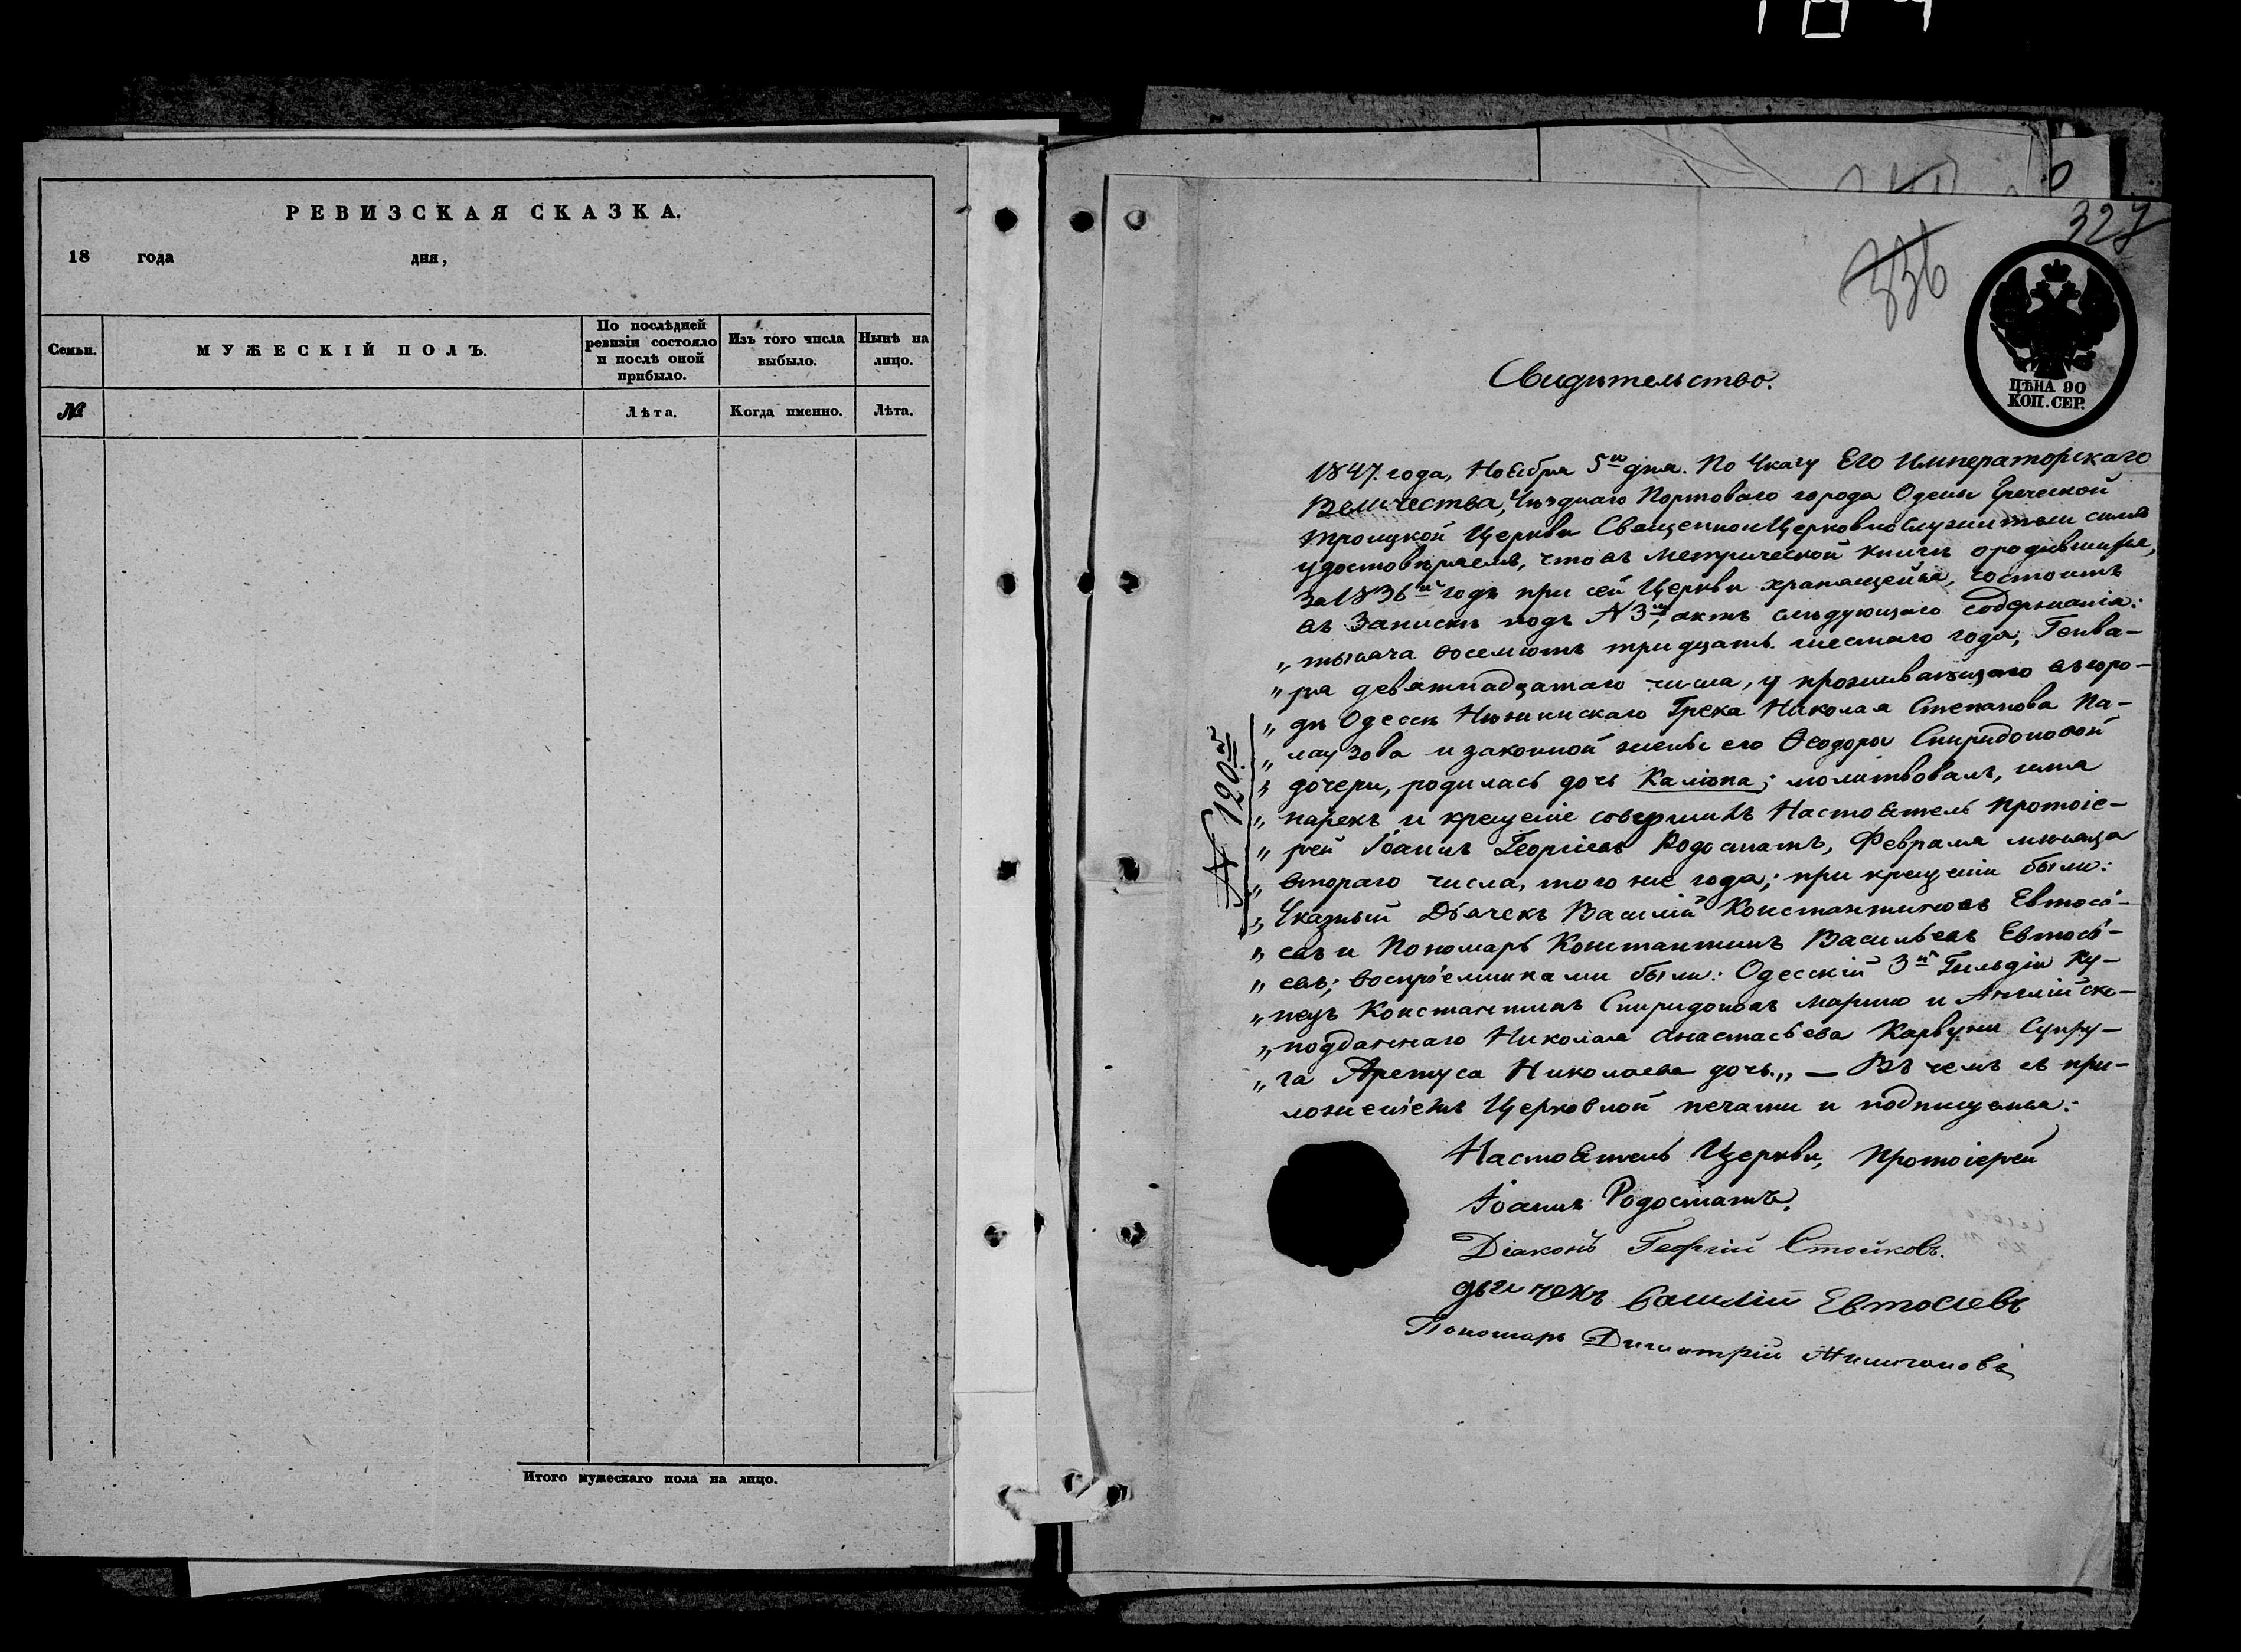 РЕВИЗСКАЯ СКАЗКА.
18 года дня,
Семьи.
МУЖЕСКІЙ ПОЛЪ.
По послѣдней ревизіи состояло и послѣ оной прибыло.
Изъ того числа выбыло.
Нынѣ на лицо.
№
Лѣта.
Когда именно.
Лѣта.
Итого мужескаго пола на лицо.
327
336
ЦѢНА 90
КОП. СЕР.
Свидѣтельство.
1847. года, Ноября 5го дня. По Указу Его Императорскаго
Величества, Уѣзднаго Портоваго города Одессы Греческой
Троицкой Церкви Священноицерковнослужители симъ
удостовѣряемъ, что въ метрической книгѣ о родившихся,
за 1836й годъ при сей Церкви хранящейся, состоитъ
въ Записки подъ N 3мъ, актъ слѣдующаго содержанія:
„ тысяча восемьсотъ тридцать шестаго года, Генва-
„ ря девятнадцатаго числа, у проживающаго въ горо-
„ дѣ Одессѣ Нѣжинскаго Грека Николая Степанова Па-
„ лаузова и законной жены его Ѳеодоры Спиридоновой
„ дочери, родилась дочь Каліопа; молитвовалъ, имя
„ нарекъ и крещеніе совершилъ Настоятель Протоіе-
„ рей Іоаннъ Георгіевъ Родостатъ, Февраля мѣсяца
„ втораго числа, того же года; при крещеніи были:
„ Указный Дьячекъ Василій Константиновъ Евтосі-
„ евъ и Пономарь Константинъ Васильевъ Евтосі-
„ евъ; воспріемниками были: Одесскій 3й Гильдіи Ку-
„ пецъ Константинъ Спиридоновъ Марино и Англійско-
„ подданнаго Николая Анастасьева Карвуни Супру-
„ га Аретуса Николаева дочь.„ — Въ чемъ съ при-
ложеніемъ Церковной печати и подпишемся:
N 120й
Настоятель Церкви, Протоіерей
Іоаннъ Родостатъ.
Діаконъ Георгій Стойковъ.
дьячекъ Василій Евтосіевъ
Пономарь Димитрій